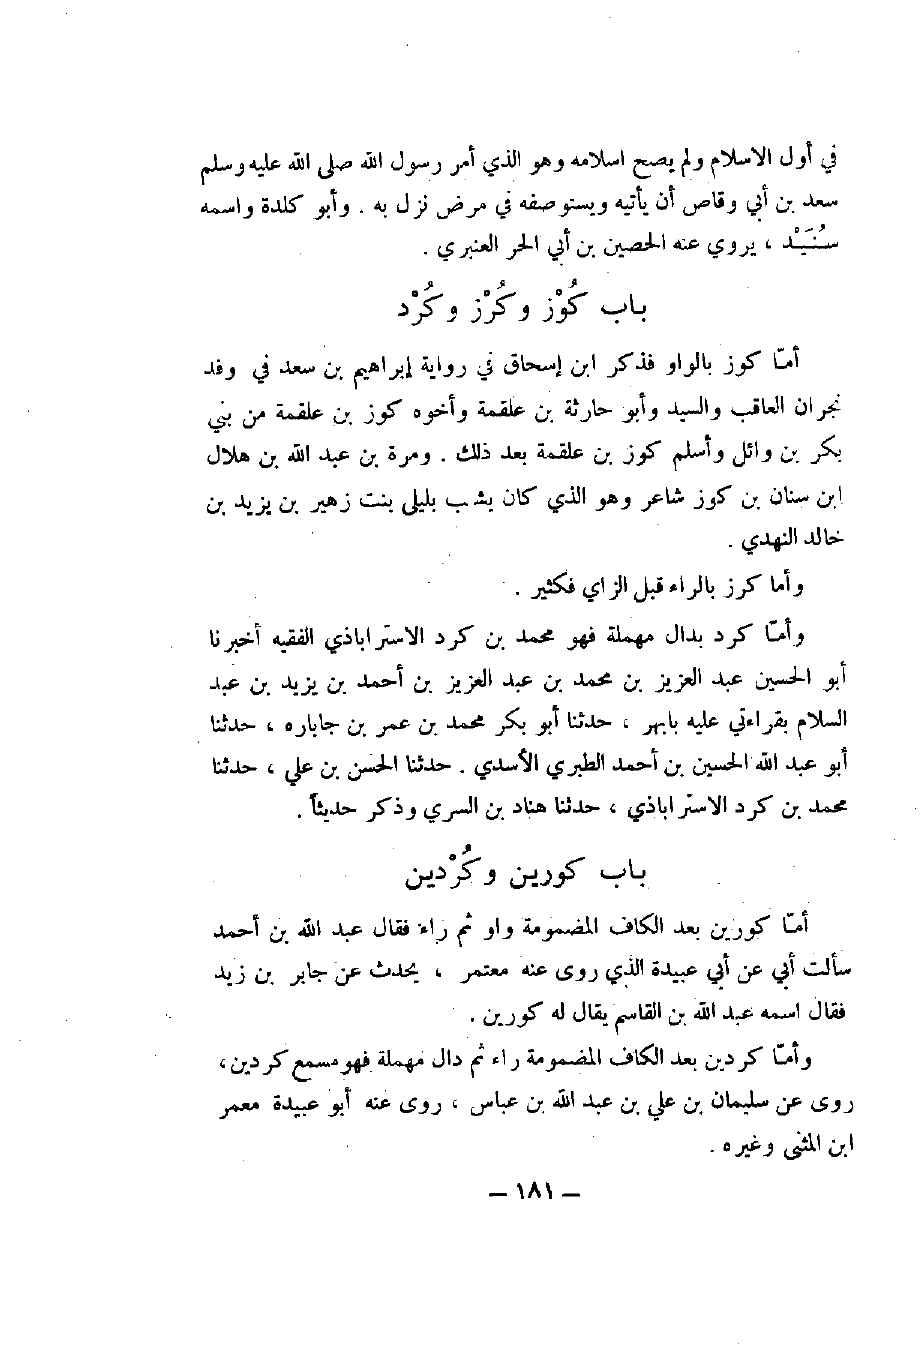 في أول الاسلام ولم يصح اسلامه وهو الذي أمر رسول الله صلى الله عليه وسلم
سعد بن أبي وقاص أن يأتيه ويستوصفه في مرض نزل به . وأبو كلدة واسمه
سُنَيْد ، يروي عنه الحصين بن أبي الحر العنبري .
باب كُوْز وكُرْز وكُرْد
أمّا كوز بالواو فذكر ابن إسحاق في رواية إبراهيم بن سعد في وفد
نجران العاقب والسيد وأبو حارثة بن علقمة وأخوه كوز بن علقمة من بني
بكر بن وائل وأسلم كوز بن علقمة بعد ذلك . ومرة بن عبد الله بن هلال
ابن سنان بن كوز شاعر وهو الذي كان يشب بليلى بنت زهير بن يزيد بن
خالد النهدي .
وأما كرز بالراء قبل الزاي فكثير .
وأمّا كرد بدال مهملة فهو محمد بن كرد الاستراباذي الفقيه أخبرنا
أبو الحسين عبد العزيز بن محمد بن عبد العزيز بن أحمد بن يزيد بن عبد
السلام بقراءتي عليه بابهر ، حدثنا أبو بكر محمد بن عمر بن جاباره ، حدثنا
أبو عبد الله الحسين بن أحمد الطبري الأسدي . حدثنا الحسن بن علي ، حدثنا
محمد بن كرد الاستراباذي ، حدثنا هناد بن السري وذكر حديثاً .
باب كورين وكُرْدين
أمّا كورين بعد الكاف المضمومة واو ثم راء فقال عبد الله بن أحمد
سألت أبي عن أبي عبيدة الذي روى عنه معتمر ، يحدث عن جابر بن زيد
فقال اسمه عبد الله بن القاسم يقال له كورين .
وأمّا كردين بعد الكاف المضمومة راء ثم دال مهملة فهو مسمع كردين ،
روى عن سليمان بن علي بن عبد الله بن عباس ، روى عنه أبو عبيدة معمر
ابن المثنى وغيره .
– ١٨١ –